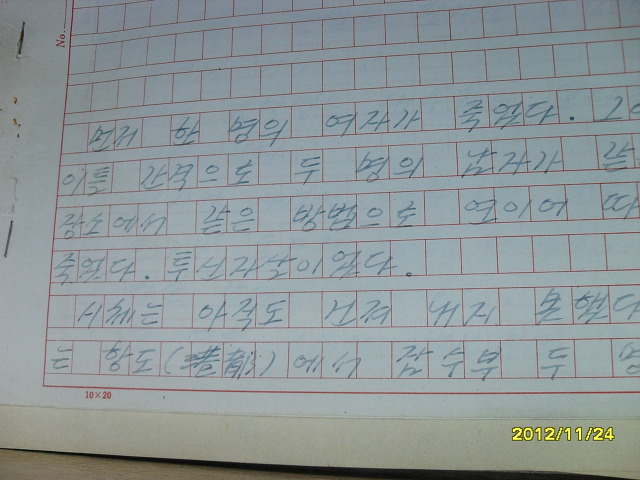 No.
먼저 한 명의 여자가 죽었다. 그
이틀 간격으로 두 명의 남자가 같
장소에서 같은 방법으로 연이어 따
죽었다. 투신자살이었다.
시체는 아직도 건져 내지 못했다
는 항도( )에서 잠수부 두 명
10×20
2012/11/24